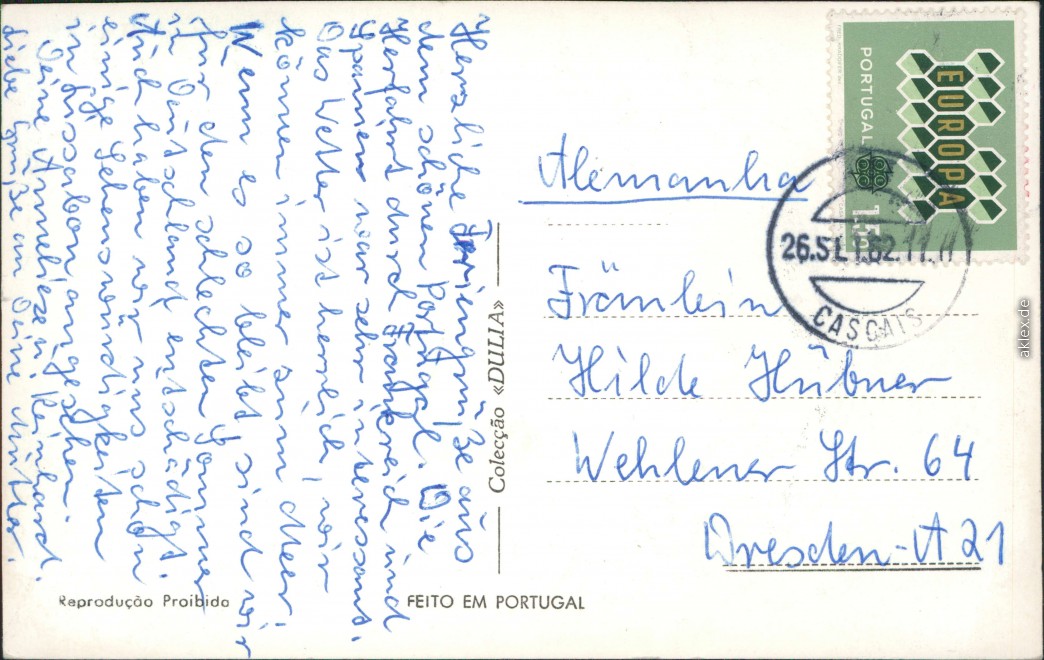 Herzliche Feriengrüße aus
dem schönen Portugal. Die
Herfahrt durch Frankreich und
Spanien war sehr interessant.
Das Wetter ist herrlich, wir
können immer zum Meer.
Wenn es so bleibt, sind wir
für den schlechten Sommer
in Deutschland entschädigt.
Auch haben wir uns schon
einige Sehenswürdigkeiten
in Lissabon angesehen.
Deine Anneliese u. Reinhard.
Liebe Grüße an Deine Mutter.
Colecção «DULIA»
Reprodução Proibida
FEITO EM PORTUGAL
PORTUGAL
EUROPA
CASCAIS
Alemanha
Fräulein
Hilde Hübner
Wehlener Str. 64
Dresden-A 21
aklex.de